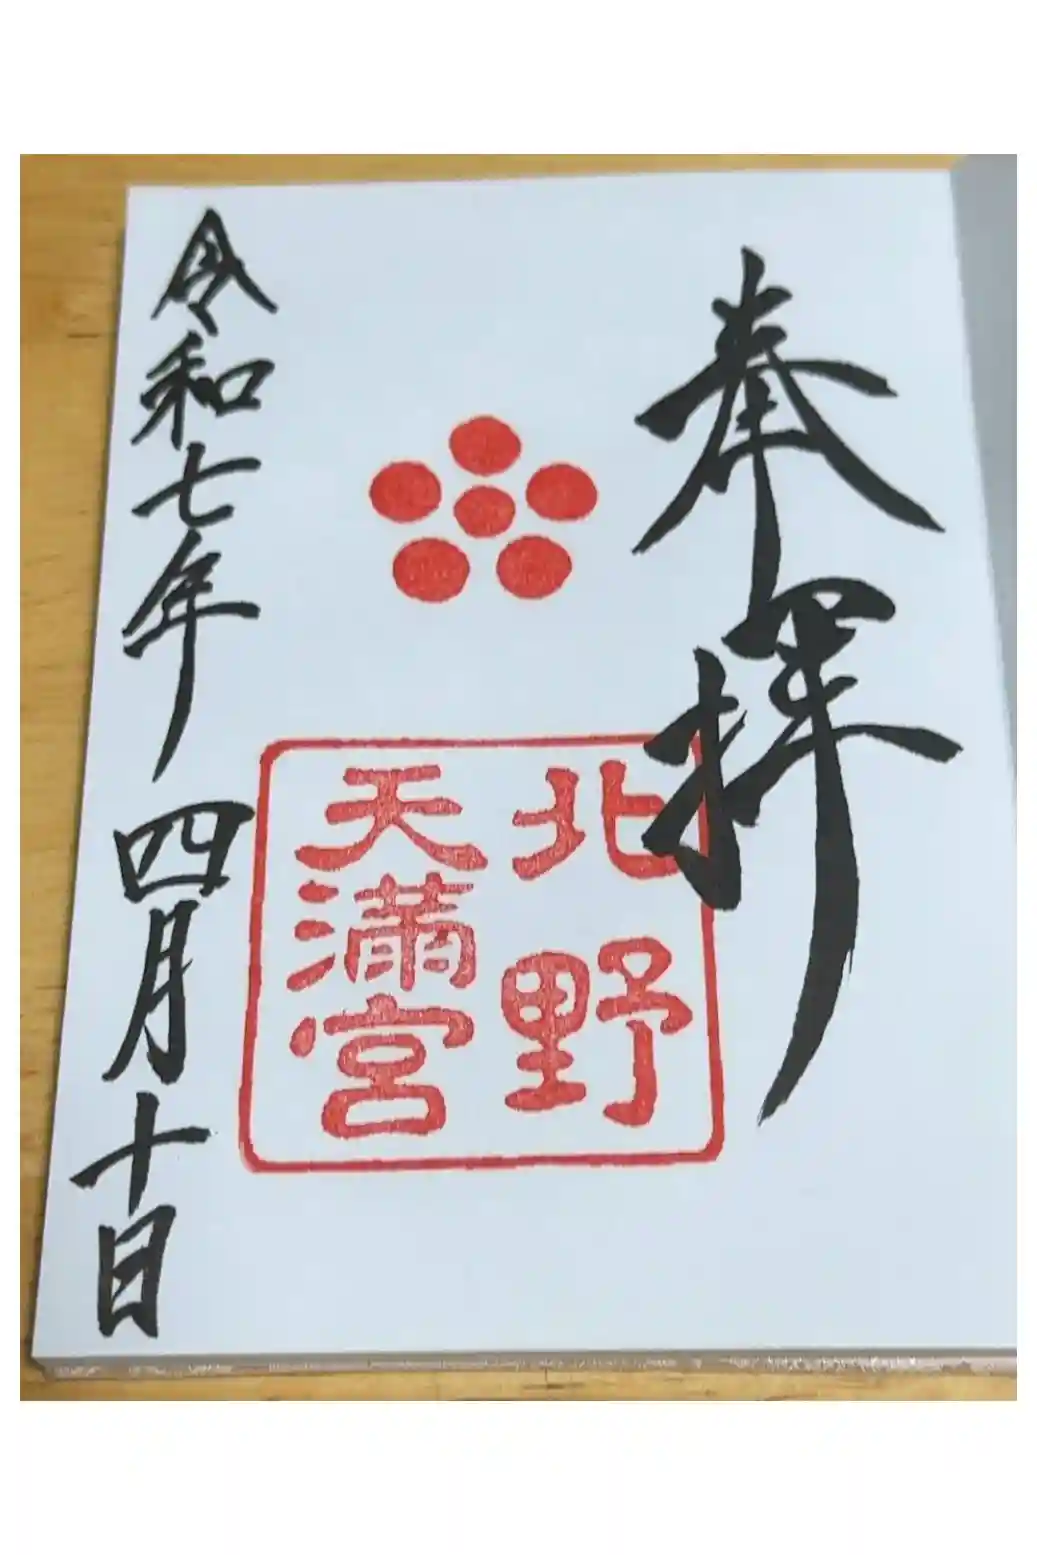 奉拝
北野
天満宮
令和七年四月十日